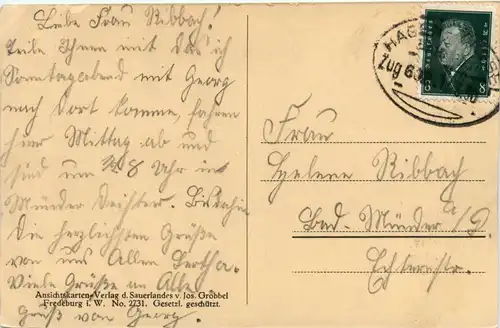 Liebe Frau Ribbach!
Teile Ihnen mit das ich
Sonntagabend mit Georg
nach dort komme, fahren
hier Mittag ab und
sind um 1/2 8 Uhr in
Münder Deister. Bis dahin
die herzlichsten Grüße
von uns Allen Bertha.
Viele Grüße an Alle
Gruß von Georg.
Ansichtskarten-Verlag d. Sauerlandes v. Jos. Grobbel
Fredeburg i. W. No. 2731. Gesetzl. geschützt.
HAG
Zug 63
8 8
Frau
Helene Ribbach
Bad-Münder a/D.
Echternstr.